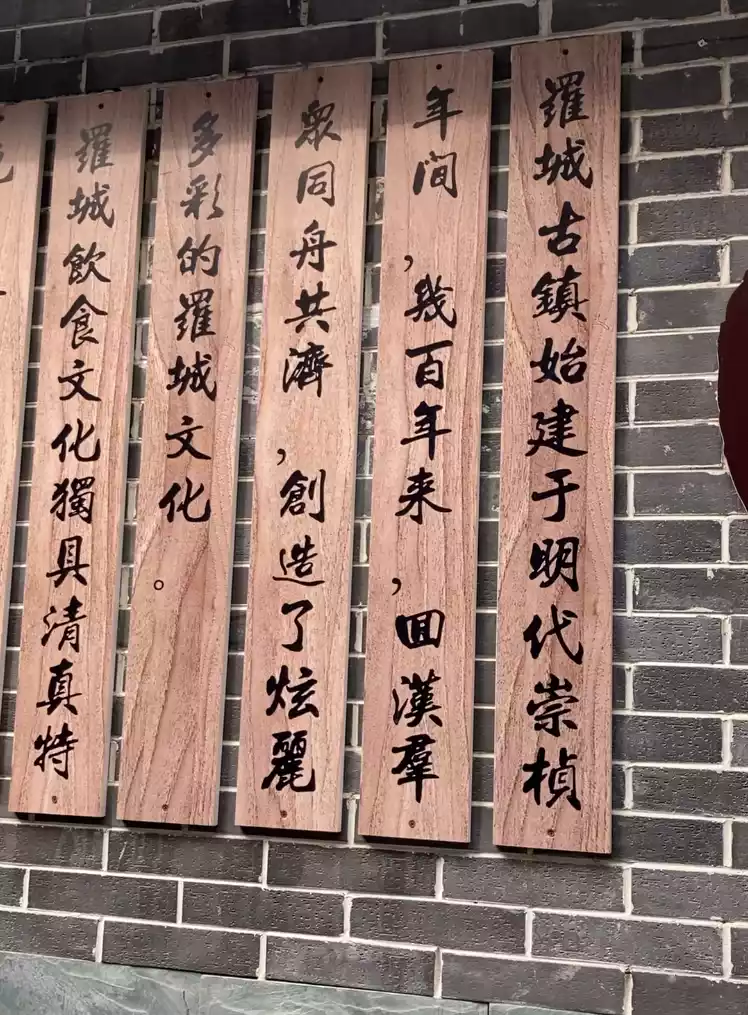 羅城古鎮始建于明代崇禎
年間，幾百年来，回漢羣
眾同舟共濟，創造了炫麗
多彩的羅城文化。
羅城飲食文化獨具清真特